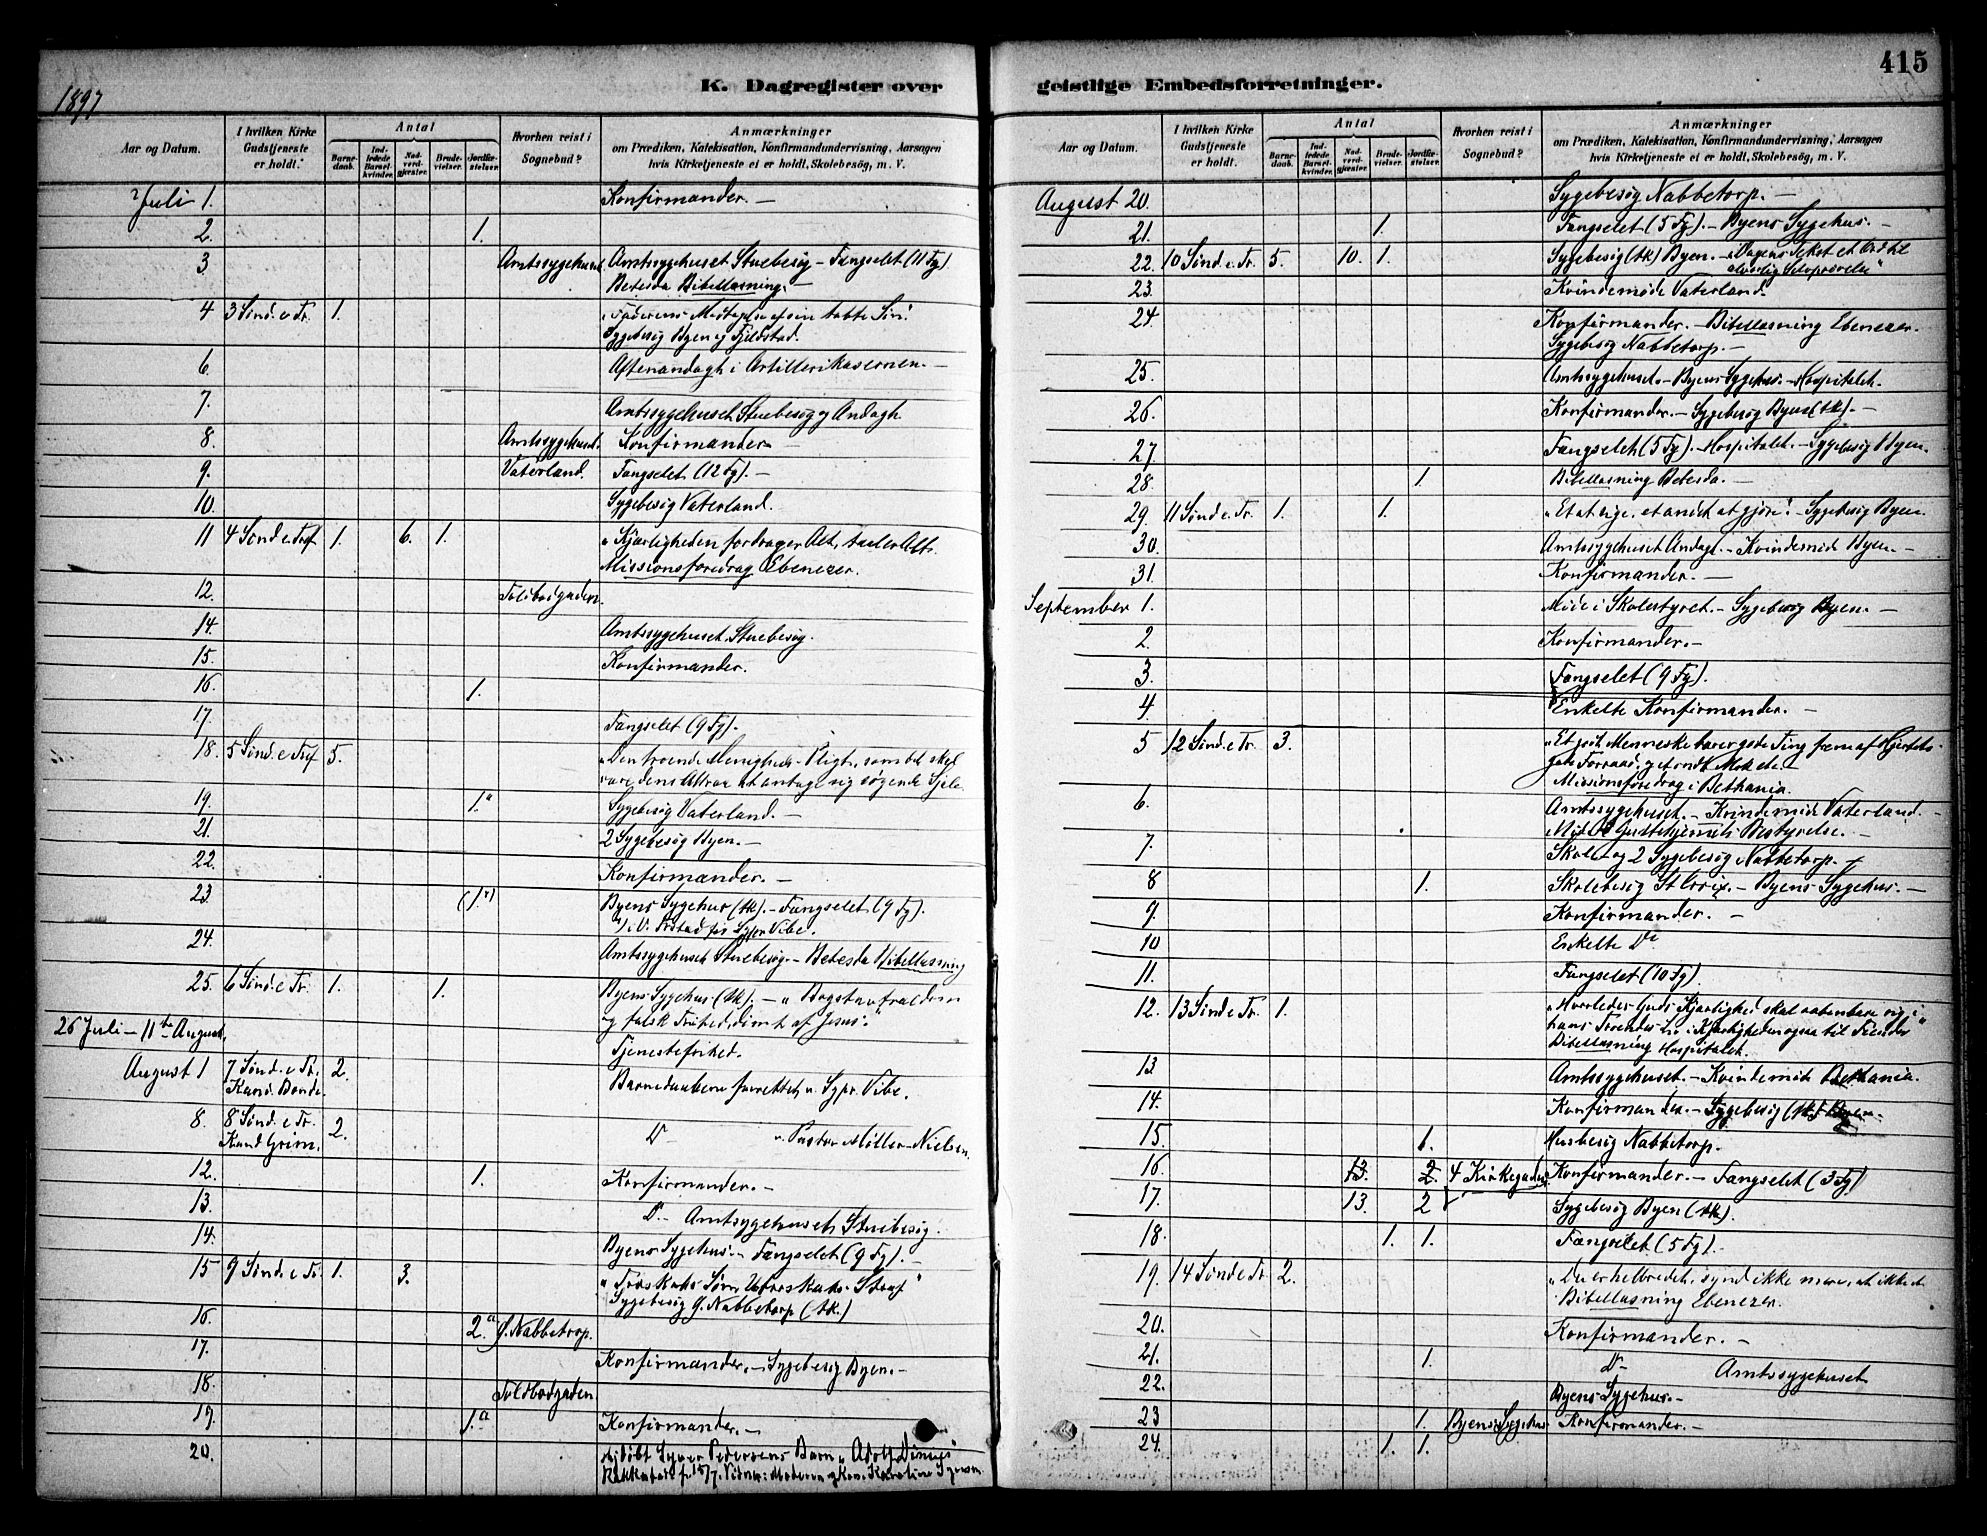 415
1897
K. Dagregister over geistlige Embedsforretninger.
Aar og Datum.
I hvilken Kirke Gudstjeneste er holdt.
Antal
Barnedaab.
Indledede Barselkvinder.
Nadverdgjæster.
Brudevielser.
Jordfæstelser.
Hvorhen reist i Sognebud?
Anmærkninger
om Prædiken, Katekisation, Konfirmandundervisning, Aarsagen
hvis Kirketjeneste ei er holdt, Skolebesøg, m. V.
Juli 1. Konfirmander. —
2. 1.
3. Amtssygehuset Amtssygehuset Stuebesøg — Fængselet (11 Fg)
Betesda Bibellæsning. —
4 3 Sønd. e Tr. 1.
Sygebesøg Byen og Fjeldstad.
6. Aftenandagt i Artillerikasernen. —
7. Amtssygehuset Stuebesøg og Andagt
8. Amtssygehuset. Konfirmander
9. Vaterland. Fængselet (12 Fg). —
10. Sygebesøg Vaterland.
11 4 Sønd e Tref 1. 6. 1. „Kjærligheden fordrager Alt, taaler Alt.
Missionsforedrag Ebenezer.
12. Toldbodgaden.
14. Amtssygehuset Stuebesøg.
15. Konfirmander.
16 1.
17. Fængselet (9 Fg).
18. 5 Sønd. e Tref 5. „Den troende Menigheds Pligt, som det skal
være dens Attraa at antage sig søgende Sjele.
19. 1.a Sygebesøg Vaterland. —
21. 2 Sygebesøg Byen. —
22. Konfirmander. —
23. Byens Sygehus (tk). — Fængselet (9 Fg).
24. Amtssygehuset Stuebesøg. — Betesda Bibellæsning
25. 6 Sønd e Tr. 1. 1. Byens Sygehus (tk). — „Bogstavtrældom
og falsk Frihed, dømt af Jesus."
26 Juli — 11te August. Tjenestefrihed.
August 1 7 Sønd. e Tr. 2. Barnedaabene forrettet v. Sgpr. Vibe.
Kand. Bonde.
8. 8 Sønd. e Tr. 2. Do v. Pastor Møller-Nielsen.
Kand Grim.
12. 1. Konfirmander. —
13. Do — Amtssygehuset Stuebesøg.
14. Byens Sygehus. — Fængselet (9 Fg). —
15 9 Sønd e Tr. 1. 3.
Sygebesøg G. Nabbetorp (tk.)
16. 2.a G. Nabbetorp.
17. Konfirmander. — Sygebesøg Byen. —
18. Toldbodgaden.
19 1.a Konfirmander. —
20.
August 20. Sygebesøg Nabbetorp. —
21. 1. Fængselet (5 Fg). — Byens Sygehus. —
22. 10 Sønd. e. Tr. 5. 10. 1. Sygebesøg (tk) Byen. —
alvorlig Selvprøvelse"
23. Kvindemøde Vaterland.
24. Konfirmander. — Bibellæsning Ebenezer.
Sygebesøg Nabbetorp. —
25. Amtssygehuset. — Byens Sygehus. — Hospitalet.
26. Konfirmander. — Sygebesøg Byen (tk). —
27. Fængselet (5 Fg). — Hospitalet. — Sygebesøg Byen.
28. 1 Bibellæsning Betesda. —
29. 11 Sønd e. Tr. 1. 1. „Et at sige, et andet at gjøre". — Sygebesøg Byen.
30. Amtssygehuset Andagt. — Kvindemøde Byen. —
31. Konfirmander. —
September 1. Møde i Skolestyret. — Sygebesøg Byen. —
2. Konfirmander. —
3. Fængselet (9 Fg).
4 Enkelte Konfirmander. —
5 12 Sønd. e Tr. 3. „Et godt Menneske bærer gode Ting frem af Hjertets
gode Forraad, og et ondt
Missionsforedrag i Bethania.
6. Amtssygehuset. — Kvindemøde Vaterland. —
Bestyrelse. —
7. Skole og 2 Sygebesøg Nabbetorp. —
8 1. Skolebesøg St Croix. — Byens Sygehus. —
9. Konfirmander. —
10 Enkelte Do
11. Fængselet (10 Fg).
12. 13 Sønd e Tr. 1. „Hvorledes Guds Kjærlighed skal aabenbare sig i
hans Troendes Liv i Kjærligheden ogsaa til Fiender"
Bibellæsning Hospitalet.
13 Amtssygehuset. — Kvindemøde Bethania.
14. Konfirmander. — Sygebesøg (tk) Byen. —
15. 1. Husbesøg Nabbetorp.
16 13. 2. 4 Kirkegaden Konfirmander. — Fængselet (3 Fg)
17. 13. 2 Sygebesøg Byen (tk).
18. 1. 1. Fængselet (5 Fg). —
19. 14 Sønd e Tr 2. „Du er helbredet, synd ikke mere, at ikke
Bibellæsning Ebenezer.
20. Konfirmander. —
21. 1. Do Amtssygehuset
22. Byens Sygehus. —
23 1. Byens Sygehus Konfirmander. —
24. 1. 1.